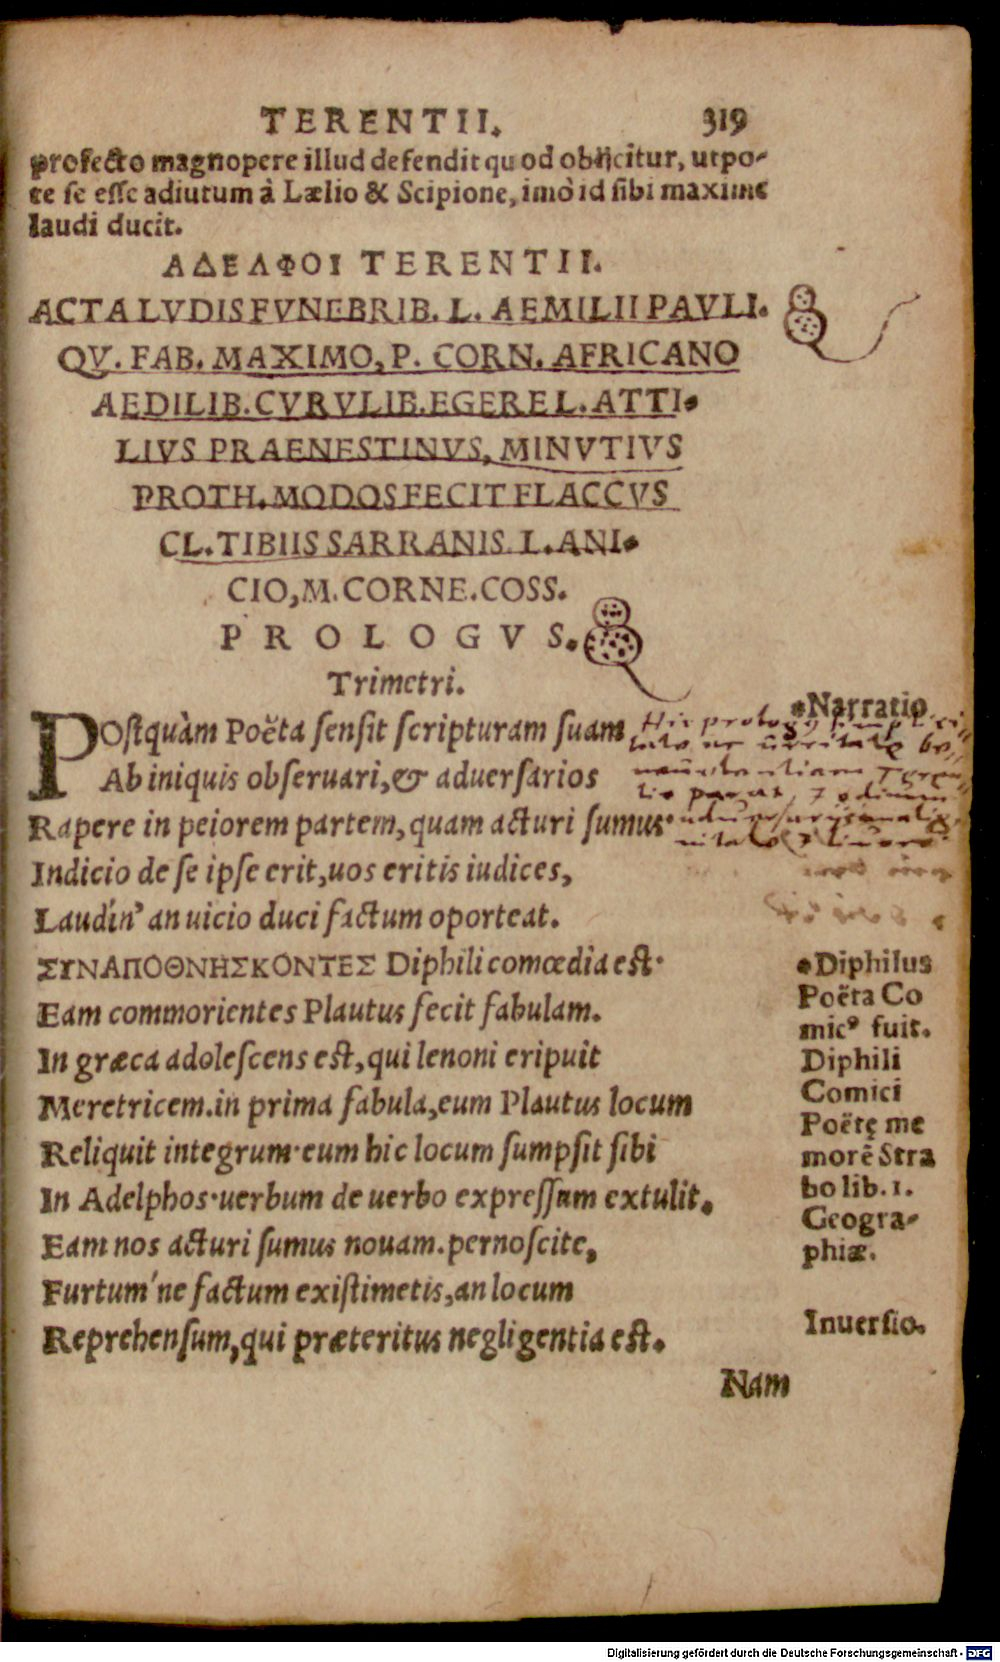 TERENTII. 319
profecto magnopere illud defendit quod obijcitur, utpo-
te se esse adiutum à Lælio & Scipione, imò id sibi maxime
laudi ducit.
ΑΔΕΛΦΟΙ TERENTII.
ACTA LVDIS FVNEBRIB. L. AEMILII PAVLI.
QV. FAB. MAXIMO, P. CORN. AFRICANO
AEDILIB. CVRVLIB. EGERE L. ATTI-
LIVS PRAENESTINVS, MINVTIVS
PROTH. MODOS FECIT FLACCVS
CL. TIBIIS SARRANIS L. ANI-
CIO, M. CORNE. COSS.
PROLOGVS.
Trimetri.
*Narratio
POstquàm Poëta sensit scripturam suam
Ab iniquis obseruari, & aduersarios
Rapere in peiorem partem, quam acturi sumus·
Indicio de se ipse erit, uos eritis iudices,
Laudín' an uicio duci factum oporteat.
ΣΥΝΑΠΟΘΝΗΣΚΟΝΤΕΣ Diphili comœdia est·
Eam commorientes Plautus fecit fabulam.
In græca adolescens est, qui lenoni eripuit
Meretricem. in prima fabula, eum Plautus locum
Reliquit integrum· eum hic locum sumpsit sibi
In Adelphos· uerbum de uerbo expressum extulit.
Eam nos acturi sumus nouam. pernoscite,
Furtum'ne factum existimetis, an locum
Reprehensum, qui præteritus negligentia est.
Hic prologus
*Diphilus
Poëta Co
micꝰ fuit.
Diphili
Comici
Poëtę me
morẽ Stra
bo lib. 1.
Geogra-
phiæ.
Inuersio.
Nam
Digitalisierung gefördert durch die Deutsche Forschungsgemeinschaft - DFG